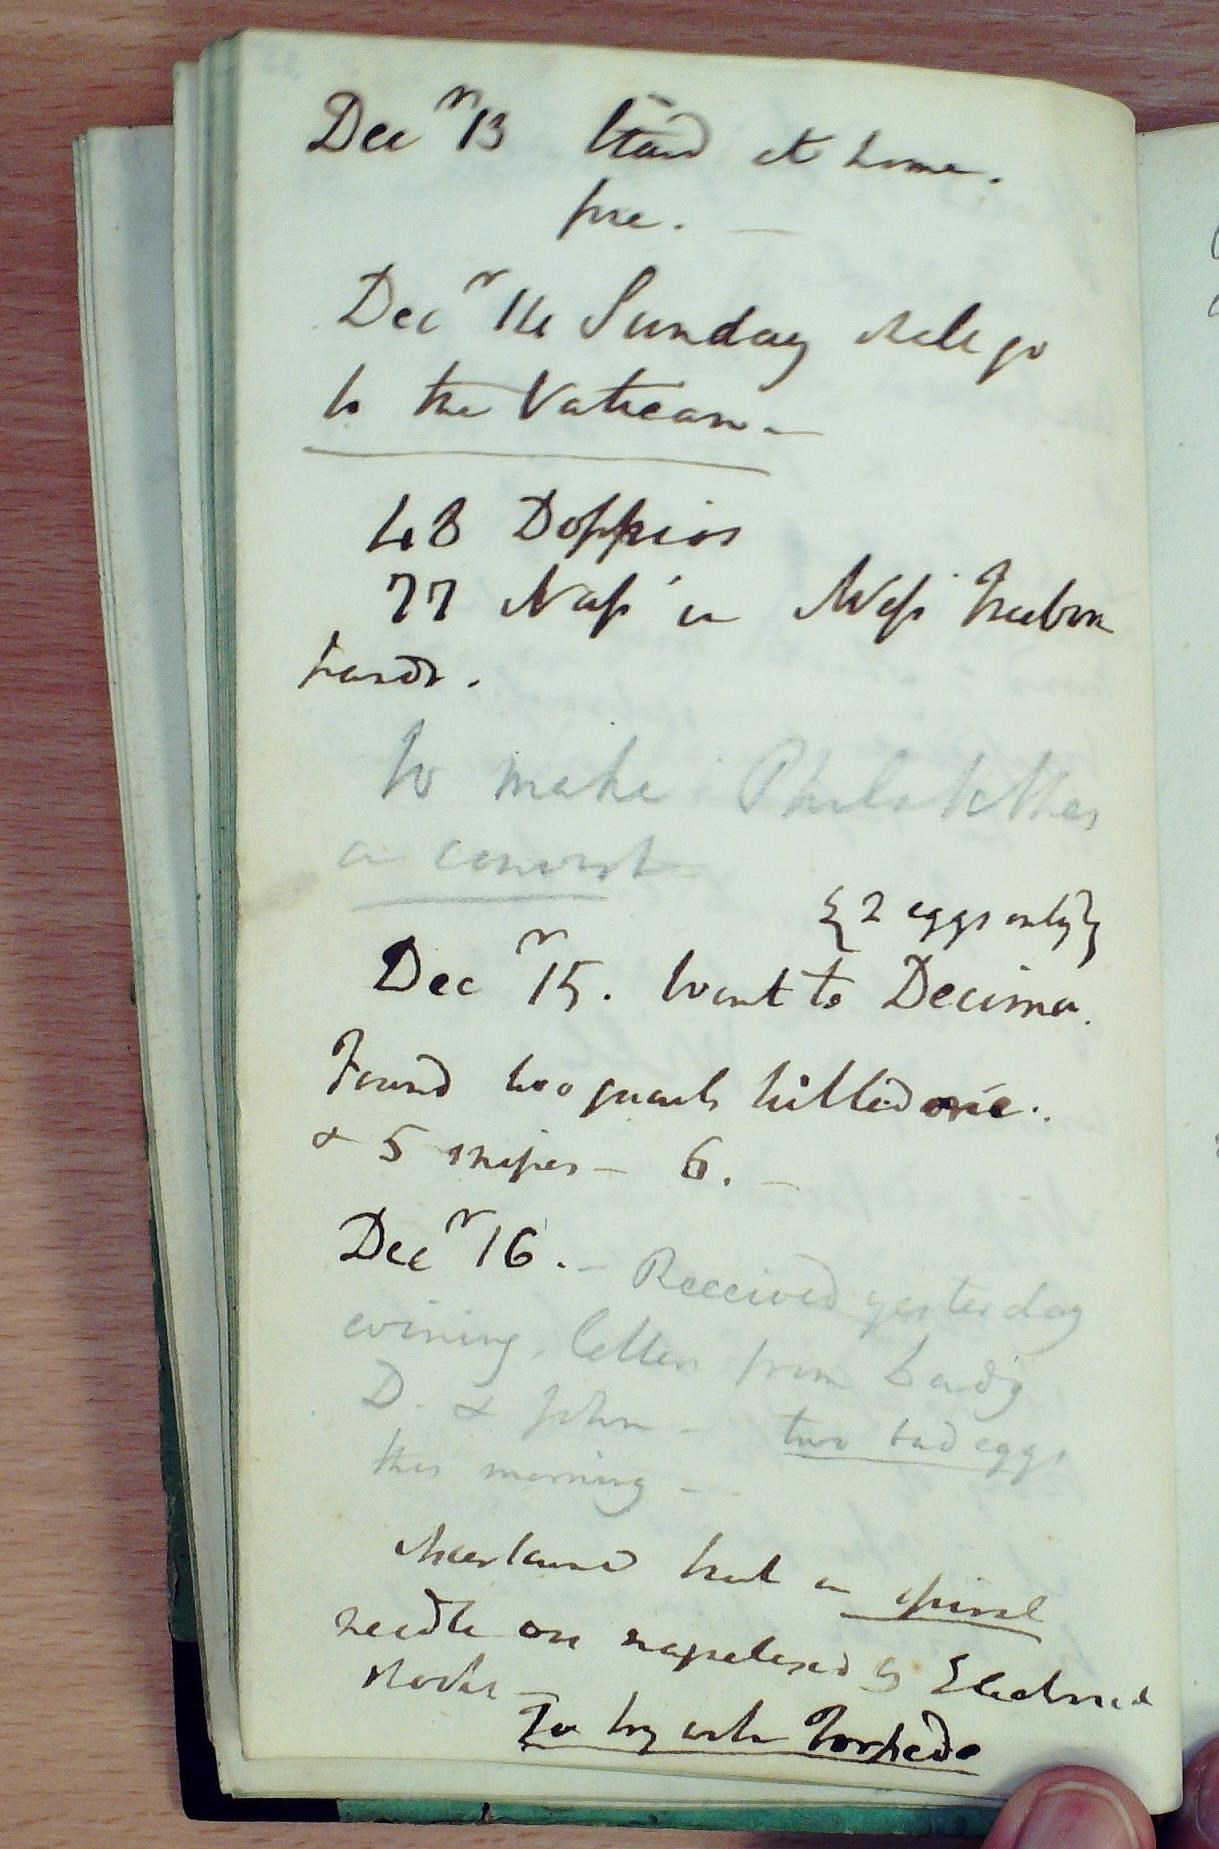 Dec^r 13 Staid at home.
fine. —
Dec^r 14 Sunday shall go
to the Vatican. —
48 Doppios
77 Nap^s in Miss Freeborn
hands.
To make Philalethes
a convert
{2 eggs only}
Dec^r 15. Went to Decima.
Found two quails killed one.
& 5 snipes — 6. —
Dec^r 16. — Received yesterday
evening letters from Lady
D. & John — two bad eggs
this morning —
that a spiral
needle on magnetised by Electrical
shocks —
To try with Torpedo